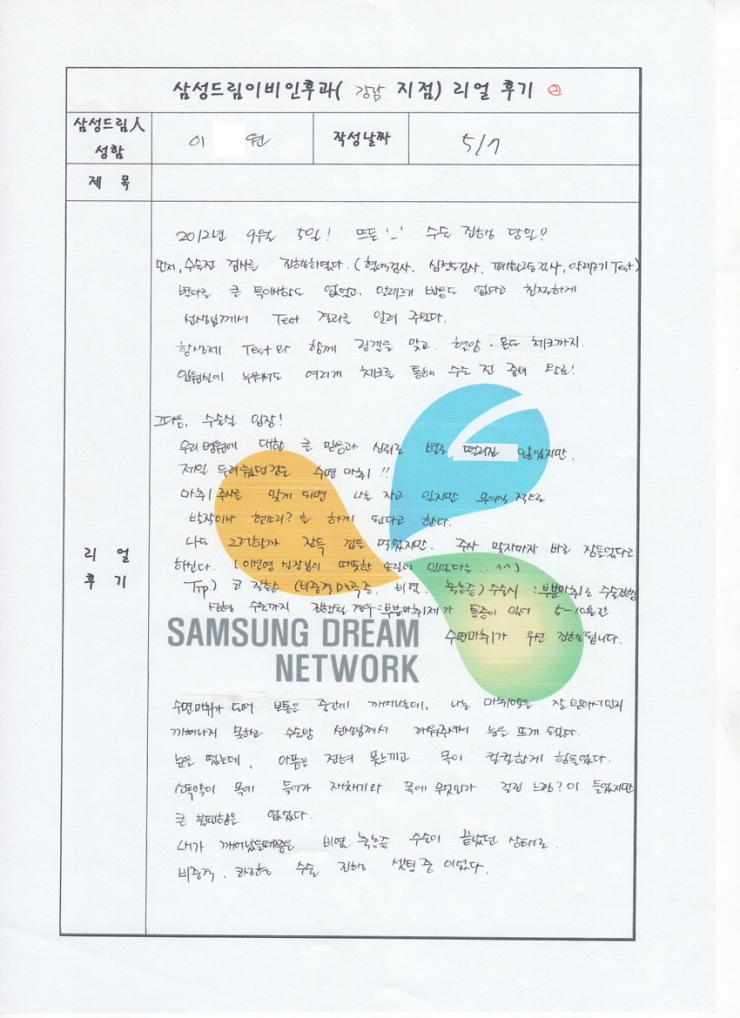 삼성드림이비인후과( 강남 지점) 리얼 후기 ②
삼성드림人 성함
이 원
작성날짜
5/7
제 목
리 얼 후 기
2012년 9월 5일! 뜨든 '_' 수술 진행 당일?
먼저, 수술전 검사를 진행하였다. (혈액검사, 심전도검사, 폐활량검사, 알레르기 Test)
별다른 큰 특이사항도 없었고. 알레르기 반응도 없다고 친절하게
선생님께서 Test 결과를 알려 주셨다.
항생제 Test와 함께 링겔을 맞고. 혈압 · 온도 체크까지.
입원실에 누워서도 여러개 체크를 통해 수술 전 준비 완료!
그다음, 수술실 입장!
우리 병원에 대한 큰 믿음과 신뢰로 별로 떨리진 않았지만.
제일 두려웠던건 수면 마취 !!
마취 주사를 맞게 되면 나는 자고 있지만 무의식 적으로
발작이나 헛소리? 를 하게 된다고 한다.
나도 그러할까 잔뜩 겁을 먹었지만. 주사 맞자마자 바로 잠들었다고
하신다. ( 실장님의 따뜻한 손길이 있었다는 .. ^^)
Tip) 코 질환 (비중격만곡증. 비염. 축농증) 수술시 : 부분마취로 수술진행
수술까지 진행될 경우 : 부분마취제가 통증이 있어 5~10분간
수면마취가 우선 진행됩니다.
SAMSUNG DREAM
NETWORK
수면마취가 되어 보통은 중간에 깨어나는데, 나는 마취약을 잘 받아서인지
깨어나지 못하고 수술방 선생님께서 깨워주셔서 눈을 뜨게 되었다.
눈을 떴는데, 아픔은 전혀 못느끼고 목이 컥컥하게 힘들었다.
소독약이 목에 들어가 재채기와 목에 무엇인가 걸린 느낌? 이 들었지만
큰 불편함은 없었다.
내가 깨어났을때쯤은 비염. 축농증 수술이 끝났던 상태로.
비중격. 수술 진행 셋팅 중 이었다.